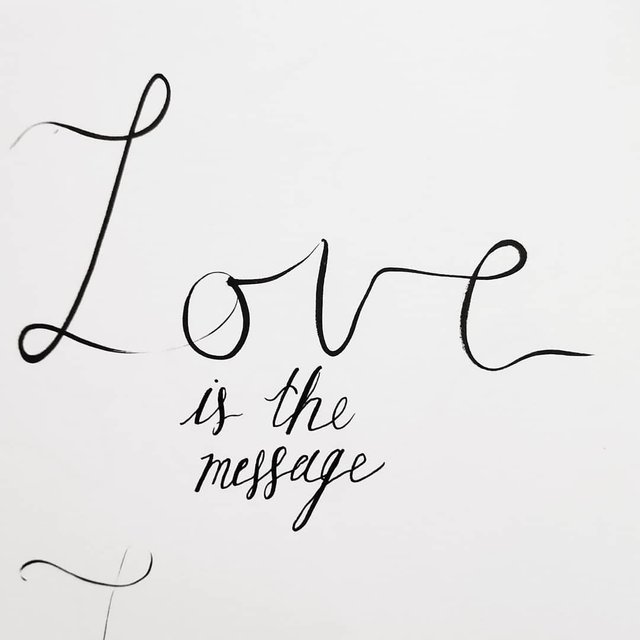 Love
is the
message